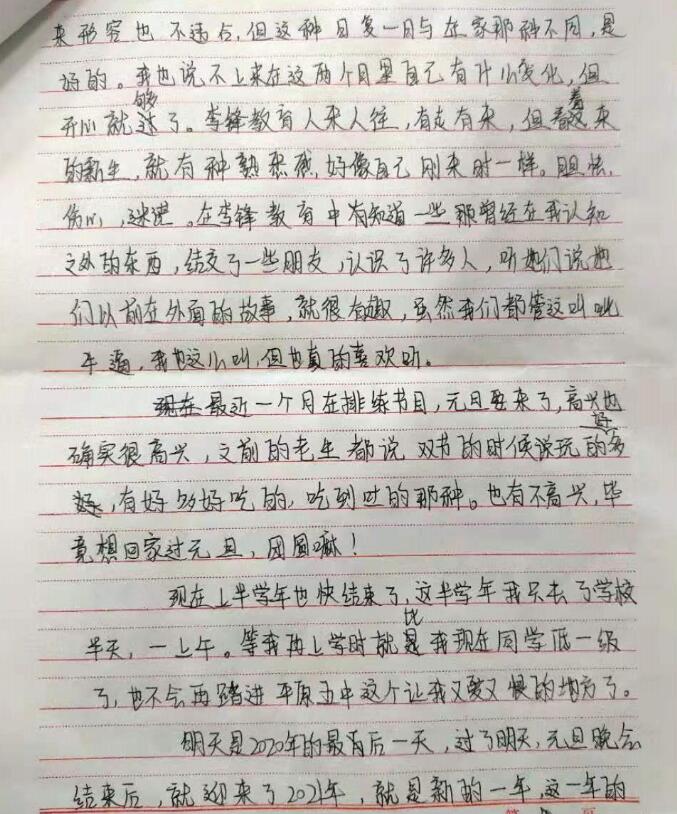 来形容也不违右,但这种日复一日与在家那种不同,是
好的。我也说不上来在这两个月里自己有什么变化,但
开心就够了。李锋教育人来人往,有走有来,但看着来
的新生,就有种熟悉感,好像自己刚来时一样。胆怯,
伤心,迷茫。在李锋教育中有知道一些那曾经在我认知
之外的东西,结交了一些朋友,认识了许多人,听她们说她
们以前在外面的故事,就很有趣,虽然我们都管这叫吹
牛逼,我也这么叫,但也真的喜欢听。
最近一个月在排练节目,元旦要来了,高兴也
确实很高兴,之前的老生都说双节的时候说玩的多
好,有好多好吃的,吃到吐的那种。也有不高兴,毕
竟想回家过元旦,团圆嘛!
现在上半学年也快结束了,这半学年我只去了学校
半天,一上午。等我再上学时就比我现在同学低一级
了,也不会再踏进平原五中这个让我又爱又恨的地方了。
明天是2020年的最后一天,过了明天,元旦晚会
结束后,就迎来了2021年,就是新的一年,这一年的